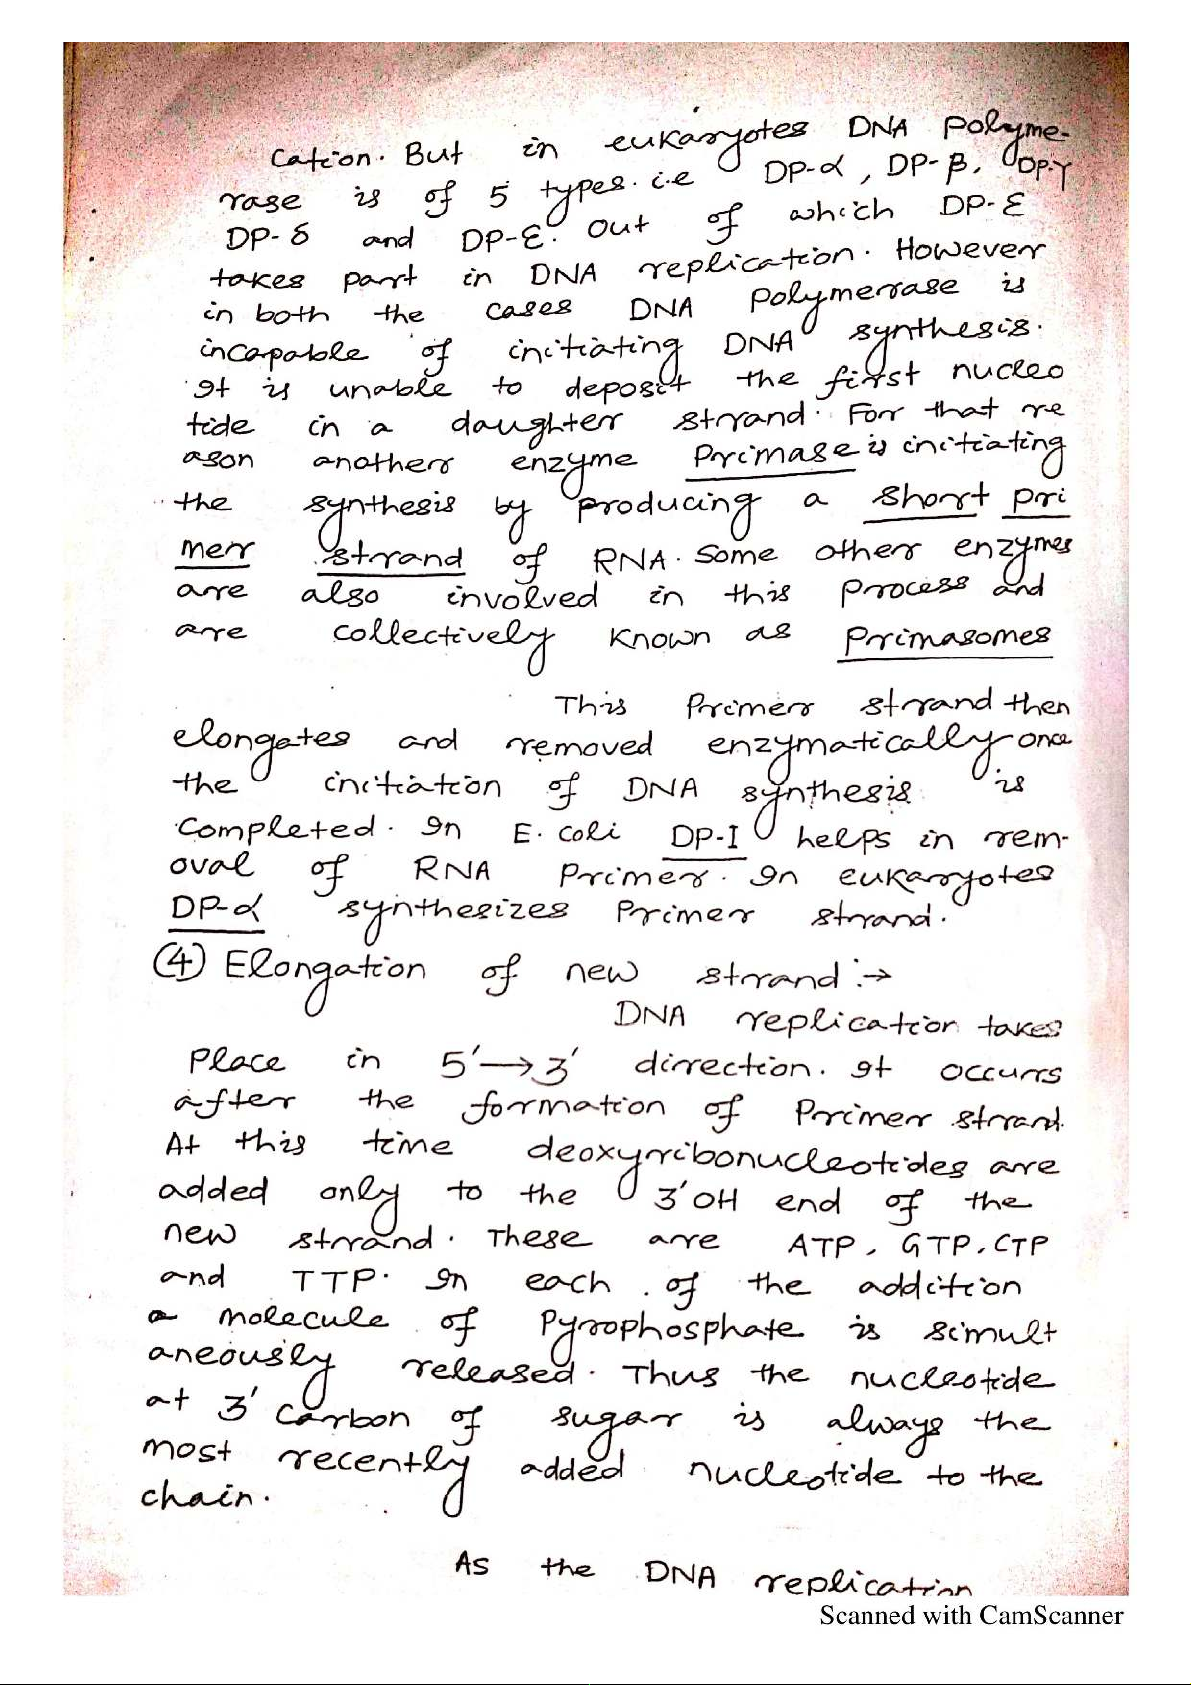 cation. But in eukaryotes DNA Polyme-
rase is of 5 types. i.e DP-α, DP-β, DP-γ
DP-δ and DP-ε. Out of which DP-ε
takes part in DNA replication. However
in both the cases DNA Polymerase is
incapable of initiating DNA synthesis.
It is unable to deposit the first nucleo
tide in a daughter strand. For that re
ason another enzyme Primase is initiating
the synthesis by producing a short pri
mer strand of RNA. Some other enzymes
are also involved in this process and
are collectively known as Primasomes
This Primer strand then
elongates and removed enzymatically once
the initiation of DNA synthesis is
completed. In E. coli DP-I helps in rem-
oval of RNA Primer. In eukaryotes
DP-α synthesizes Primer strand.
(4) Elongation of new strand :→
DNA replication takes
Place in 5′→3′ direction. It occurs
after the formation of Primer strand.
At this time deoxyribonucleotides are
added only to the 3′OH end of the
new strand. These are ATP, GTP, CTP
and TTP. In each of the addition
a molecule of Pyrophosphate is simult
aneously released. Thus the nucleotide
at 3′ carbon of sugar is always the
most recently added nucleotide to the
chain.
As the DNA replication
Scanned with CamScanner